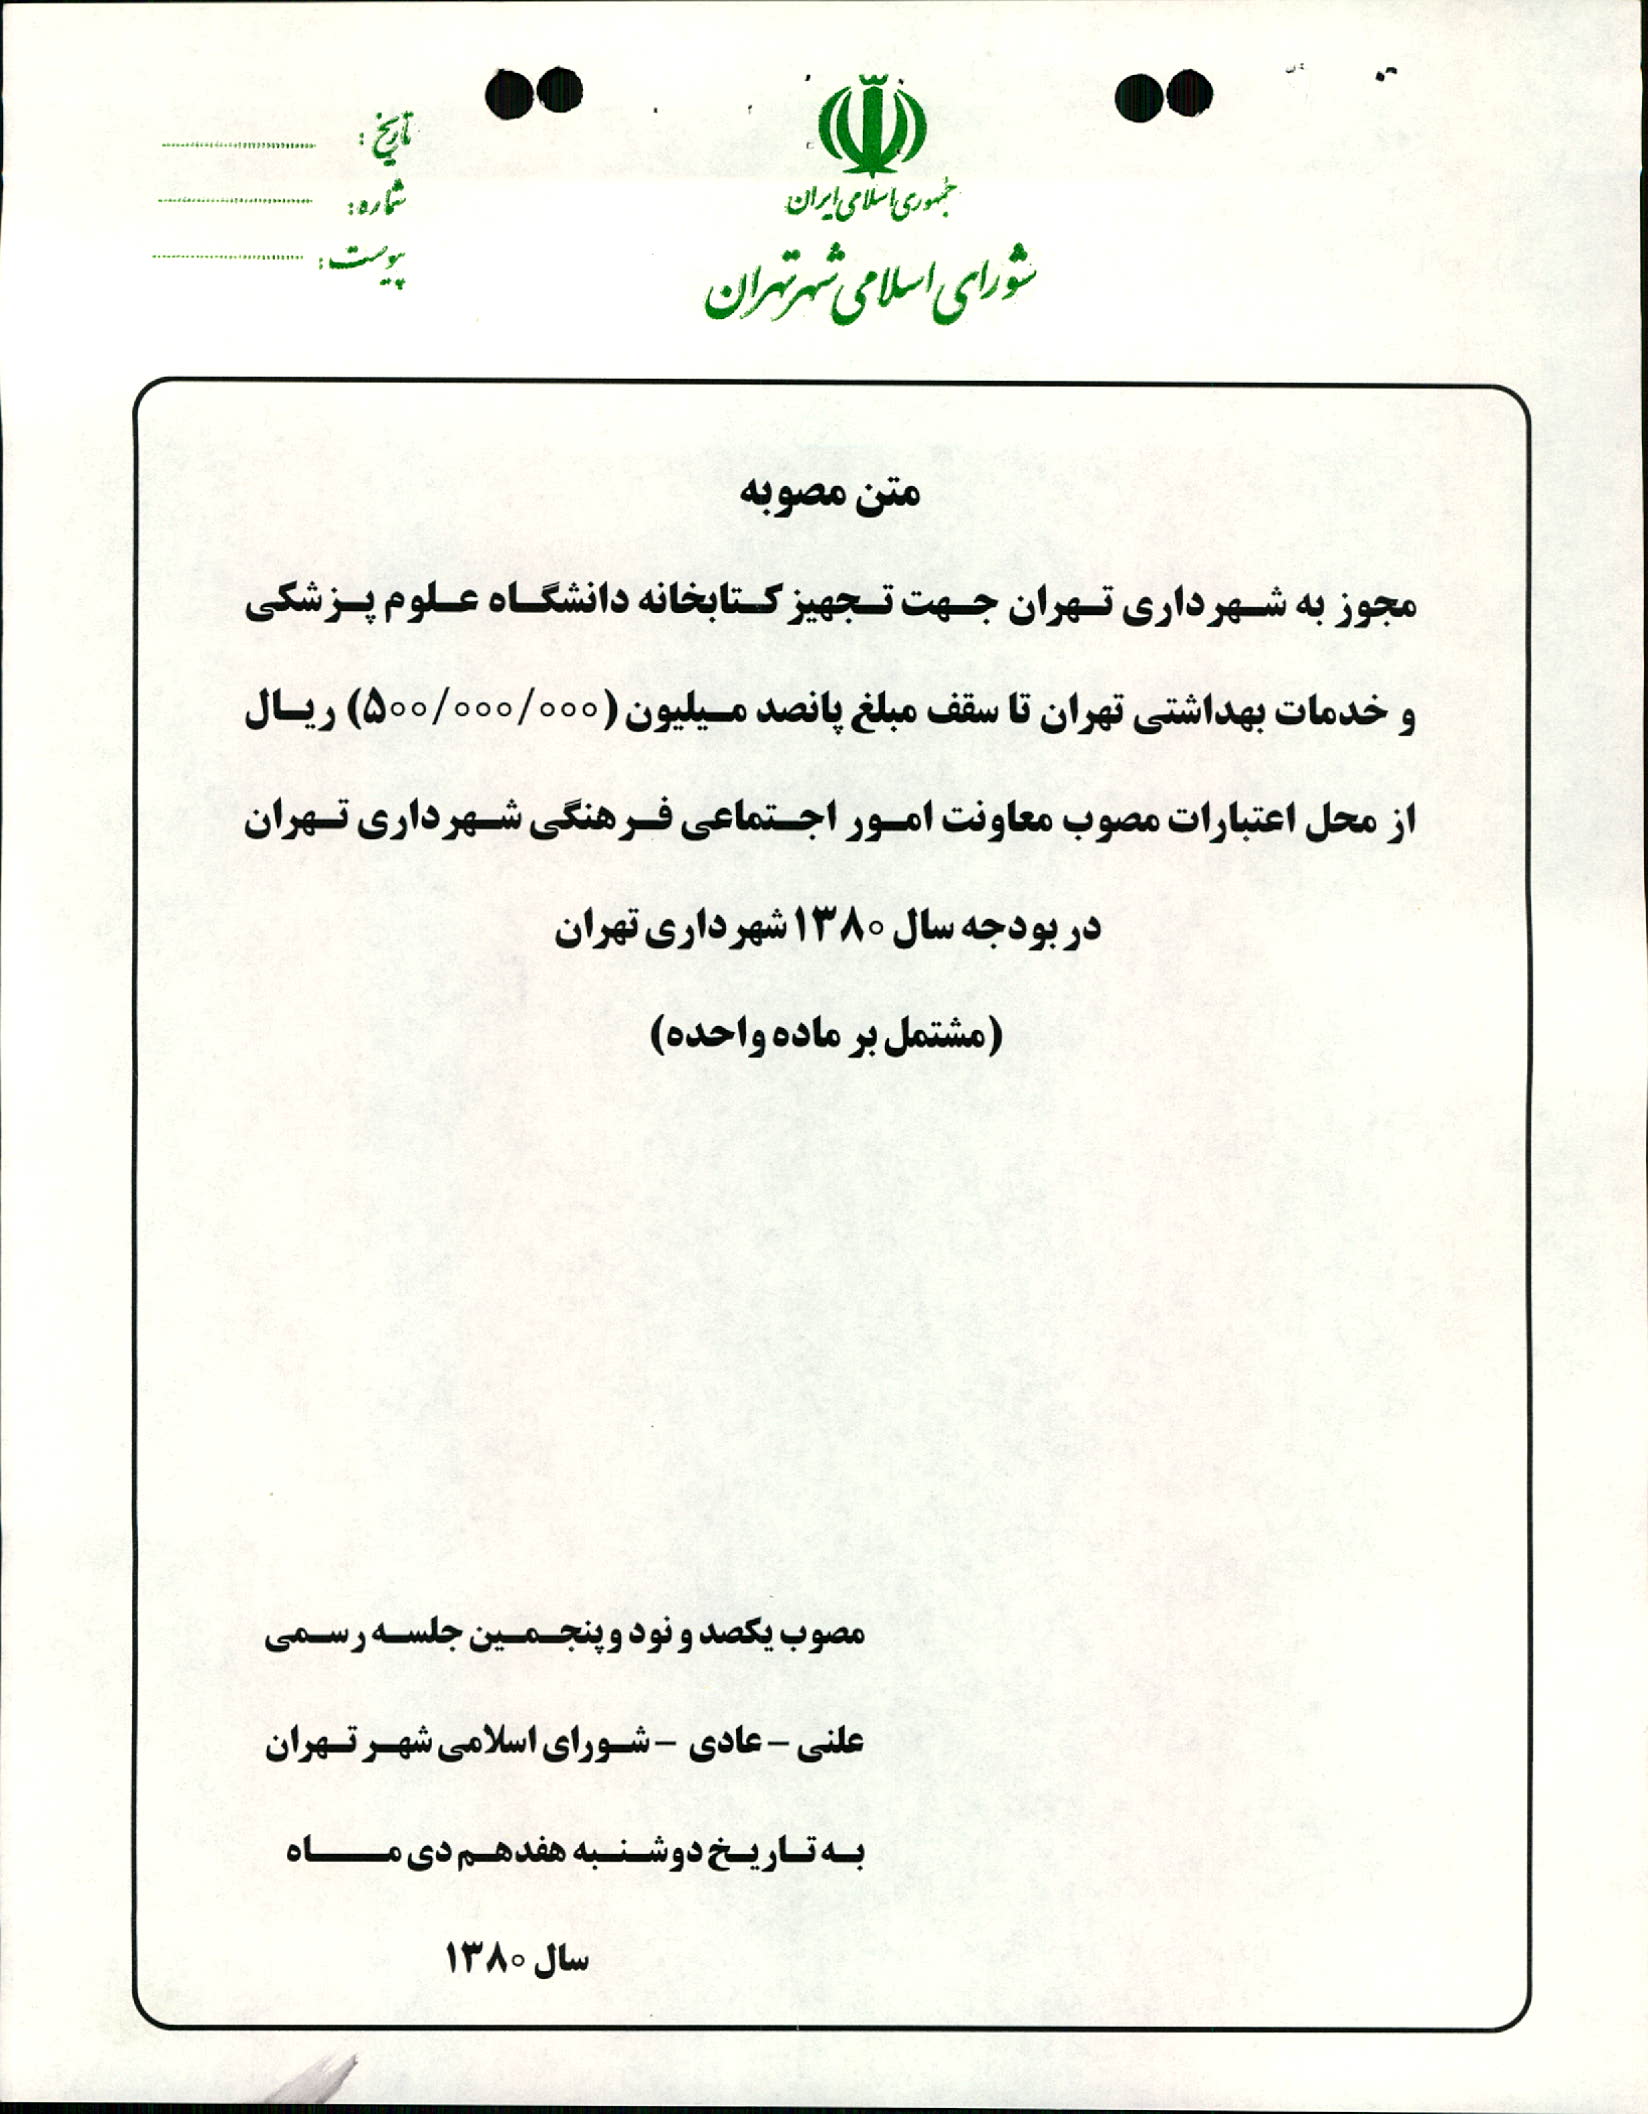 جمهوری اسلامی ایران
شورای اسلامی شهر تهران
تاریخ :
شماره :
پیوست :
متن مصوبه
مجوز به شهرداری تهران جهت تجهیز کتابخانه دانشگاه علوم پزشکی
و خدمات بهداشتی تهران تا سقف مبلغ پانصد میلیون (۵۰۰/۰۰۰/۰۰۰) ریال
از محل اعتبارات مصوب معاونت امور اجتماعی فرهنگی شهرداری تهران
در بودجه سال ۱۳۸۰ شهرداری تهران
(مشتمل بر ماده واحده)
مصوب یکصد و نود و پنجمین جلسه رسمی
علنی - عادی - شورای اسلامی شهر تهران
به تاریخ دوشنبه هفدهم دی ماه
سال ۱۳۸۰